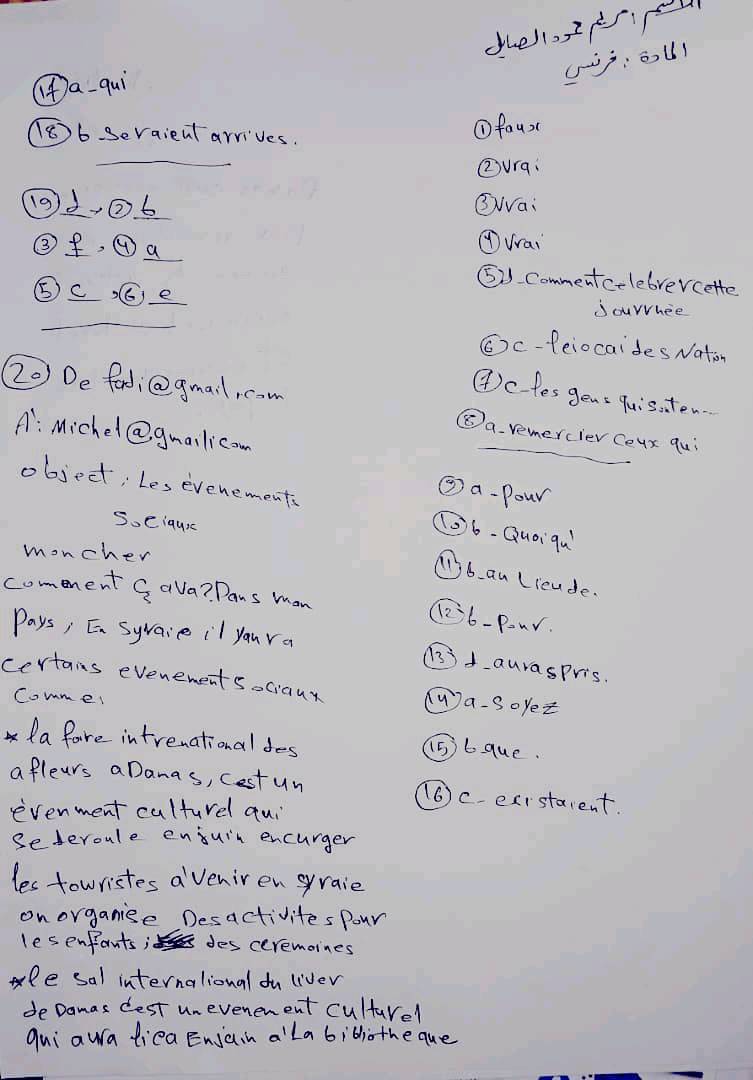 الاسم: مريم حمود الصايل
المادة: فرنسي
① faux
② vrai
③ vrai
④ vrai
⑤ d-Comment celebrer cette
jourrhée
⑥ c-leiocai des Nation
⑦ c-les gens qui sisten--
⑧ a-remercier ceux qui
⑨ a-pour
⑩ b-Quoiqu'
⑪ b-au Lieu de.
⑫ b-Pour.
⑬ d-auras pris.
⑭ a-Soyez
⑮ b que.
⑯ c-existaient.
⑰ a-qui
⑱ b seraient arrives.
⑲ d, ② b
③ f, ④ a
⑤ c, ⑥ e
⑳ De fadi@gmail.com
A': Michel@gmail.com
object: Les évenements
Sociaux
mon cher
comment ça va? Dans mon
Pays, En Syraie il yaura
certains evenement sociaux
comme:
* la foire intrenational des
a fleurs a Damas, c'est un
évenment culturel qui
se deroule en juin encurger
les towristes a' venir en syraie
on organise Des activites pour
les enfants, des ceremoines
* le sal international du liver
de Damas c'est un evenement culturel
qui aura liea En juin a' La bibiotheque